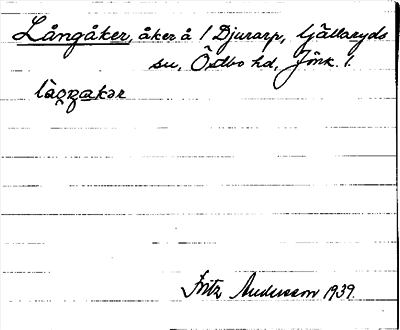 Långåker, åker å 1 Djurarp, Gällaryds
sn, Östbo hd, Jönk. l.
Fritz Andersson 1939.